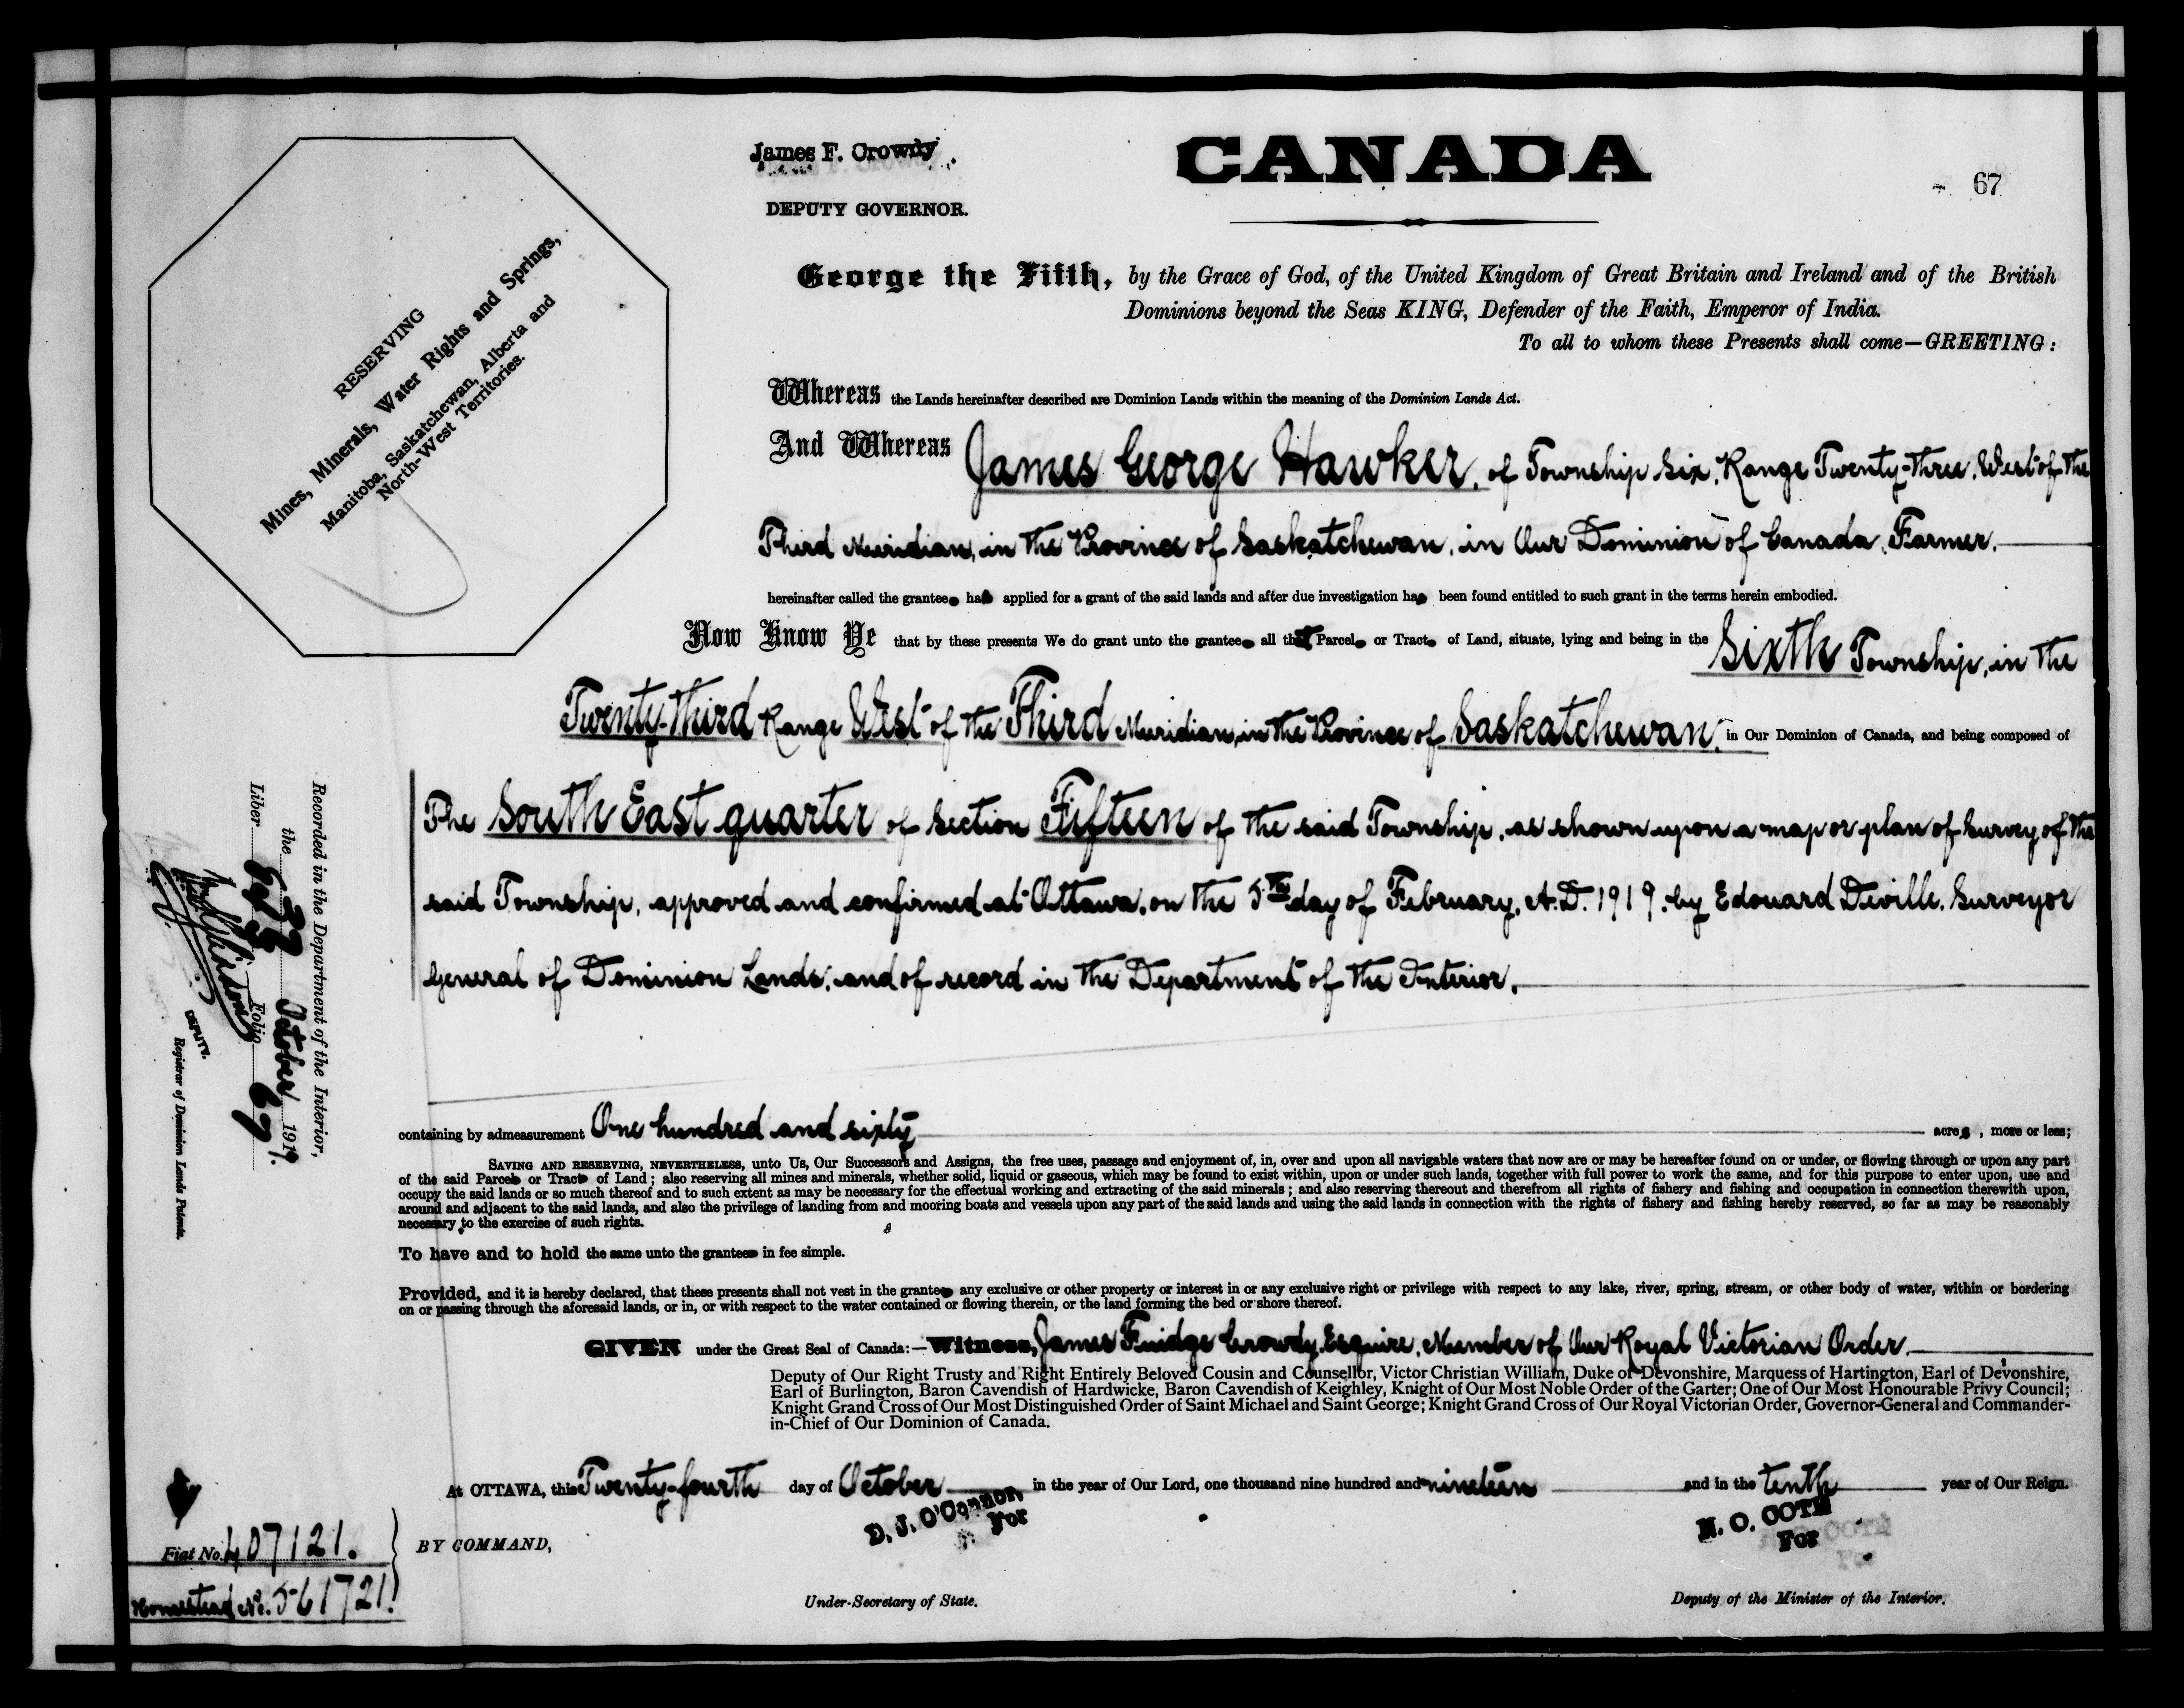 James F. Crowdy
DEPUTY GOVERNOR.
CANADA
67
RESERVING
Mines, Minerals, Water Rights and Springs,
Manitoba, Saskatchewan, Alberta and
North-West Territories.
George the Fifth, by the Grace of God, of the United Kingdom of Great Britain and Ireland and of the British
Dominions beyond the Seas KING, Defender of the Faith, Emperor of India.
To all to whom these Presents shall come—GREETING:
Whereas the Lands hereinafter described are Dominion Lands within the meaning of the Dominion Lands Act.
And Whereas James George Hawker, of Township Six, Range Twenty-three, West of the
Third Meridian, in the Province of Saskatchewan, in Our Dominion of Canada, Farmer.
hereinafter called the grantee has applied for a grant of the said lands and after due investigation has been found entitled to such grant in the terms herein embodied.
Now Know Ye that by these presents We do grant unto the grantee all that Parcel or Tract of Land, situate, lying and being in the Sixth Township, in the
Twenty-third Range West of the Third Meridian, in the Province of Saskatchewan, in Our Dominion of Canada, and being composed of
The South East quarter of Section Fifteen of the said Township, as shown upon a map or plan of Survey of the
said Township, approved and confirmed at Ottawa, on the 5th day of February, A.D. 1919, by Edouard Deville, Surveyor
General of Dominion Lands, and of record in the Department of the Interior.
containing by admeasurement One hundred and sixty acres, more or less;
SAVING AND RESERVING, NEVERTHELESS, unto Us, Our Successors and Assigns, the free uses, passage and enjoyment of, in, over and upon all navigable waters that now are or may be hereafter found on or under, or flowing through or upon any part
of the said Parcel or Tract of Land; also reserving all mines and minerals, whether solid, liquid or gaseous, which may be found to exist within, upon or under such lands, together with full power to work the same, and for this purpose to enter upon, use and
occupy the said lands or so much thereof and to such extent as may be necessary for the effectual working and extracting of the said minerals; and also reserving thereout and therefrom all rights of fishery and fishing and occupation in connection therewith upon,
around and adjacent to the said lands, and also the privilege of landing from and mooring boats and vessels upon any part of the said lands and using the said lands in connection with the rights of fishery and fishing hereby reserved, so far as may be reasonably
necessary to the exercise of such rights.
To have and to hold the same unto the grantee in fee simple.
Provided, and it is hereby declared, that these presents shall not vest in the grantee any exclusive or other property or interest in or any exclusive right or privilege with respect to any lake, river, spring, stream, or other body of water, within or bordering
on or passing through the aforesaid lands, or in, or with respect to the water contained or flowing therein, or the land forming the bed or shore thereof.
GIVEN under the Great Seal of Canada:—Witness, James Fuidge Crowdy, Esquire, Member of Our Royal Victorian Order.
Deputy of Our Right Trusty and Right Entirely Beloved Cousin and Counsellor, Victor Christian William, Duke of Devonshire, Marquess of Hartington, Earl of Devonshire,
Earl of Burlington, Baron Cavendish of Hardwicke, Baron Cavendish of Keighley, Knight of Our Most Noble Order of the Garter; One of Our Most Honourable Privy Council;
Knight Grand Cross of Our Most Distinguished Order of Saint Michael and Saint George; Knight Grand Cross of Our Royal Victorian Order, Governor-General and Commander-
in-Chief of Our Dominion of Canada.
At OTTAWA, this Twenty-fourth day of October in the year of Our Lord, one thousand nine hundred and nineteen and in the tenth year of Our Reign.
BY COMMAND,
D. J. O'Connor
For
Under-Secretary of State.
N. O. COTE
For
Deputy of the Minister of the Interior.
Recorded in the Department of the Interior,
the October 1919.
Liber Folio 67
DEPUTY.
Registrar of Dominion Lands Patents.
Fiat No. 407121.
Homestead No. 561721.